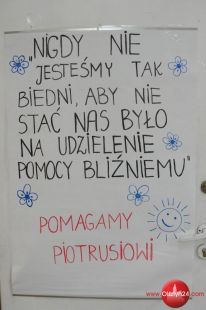 "NIGDY NIE
"JESTEŚMY TAK
BIEDNI, ABY NIE
STAĆ NAS BYŁO
NA UDZIELENIE
POMOCY BLIŹNIEMU"
POMAGAMY
PIOTRUSIOWI
www.olsztyn24.com